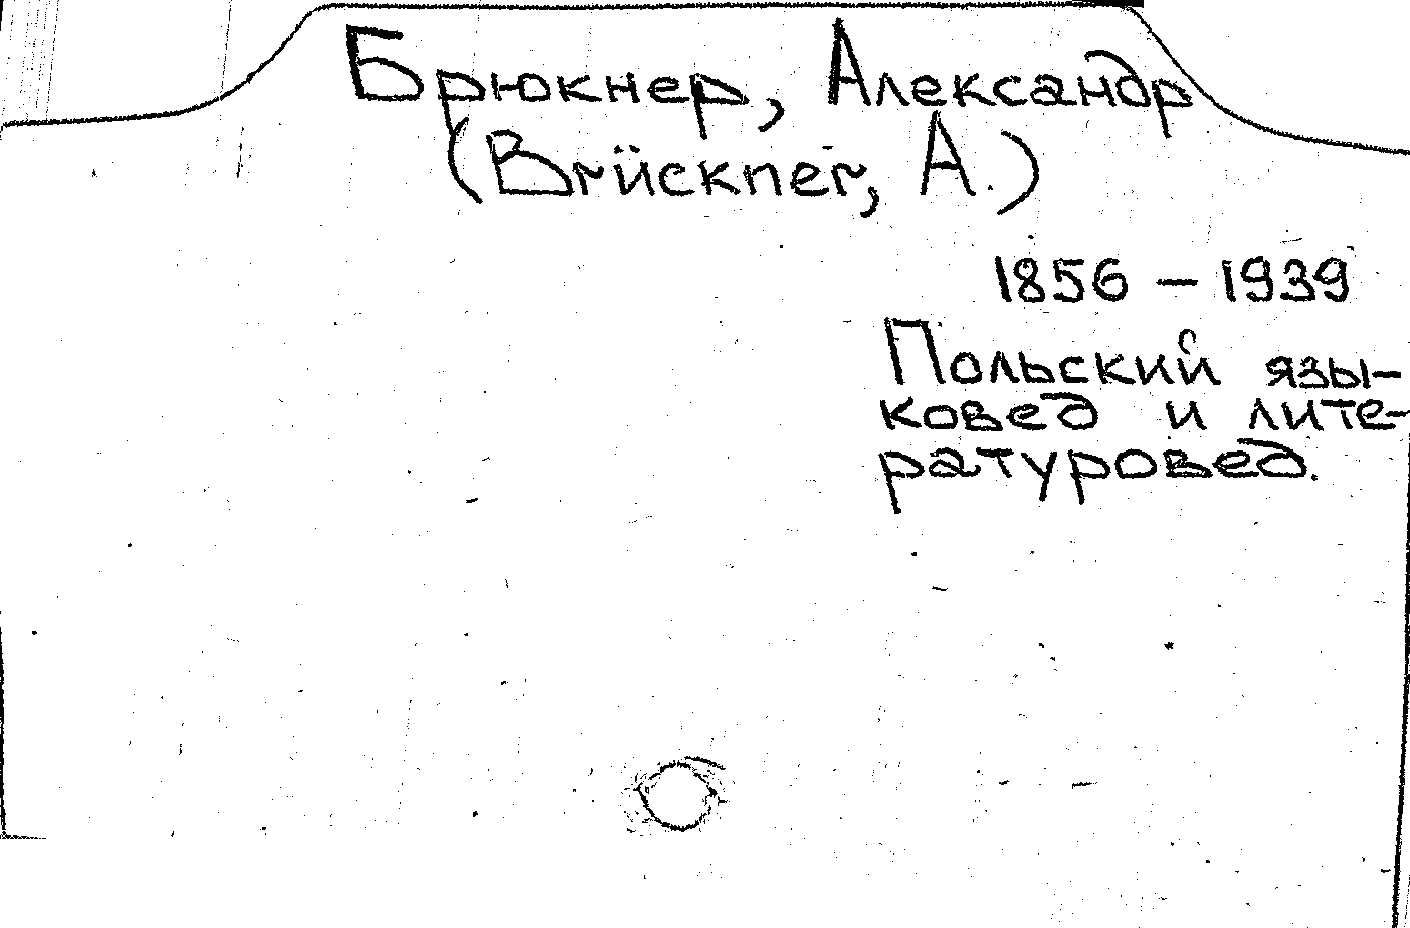 Брюкнер, Александр
(Brückner, A.)
1856 – 1939
Польский язы-
ковед и лите-
ратуровед.